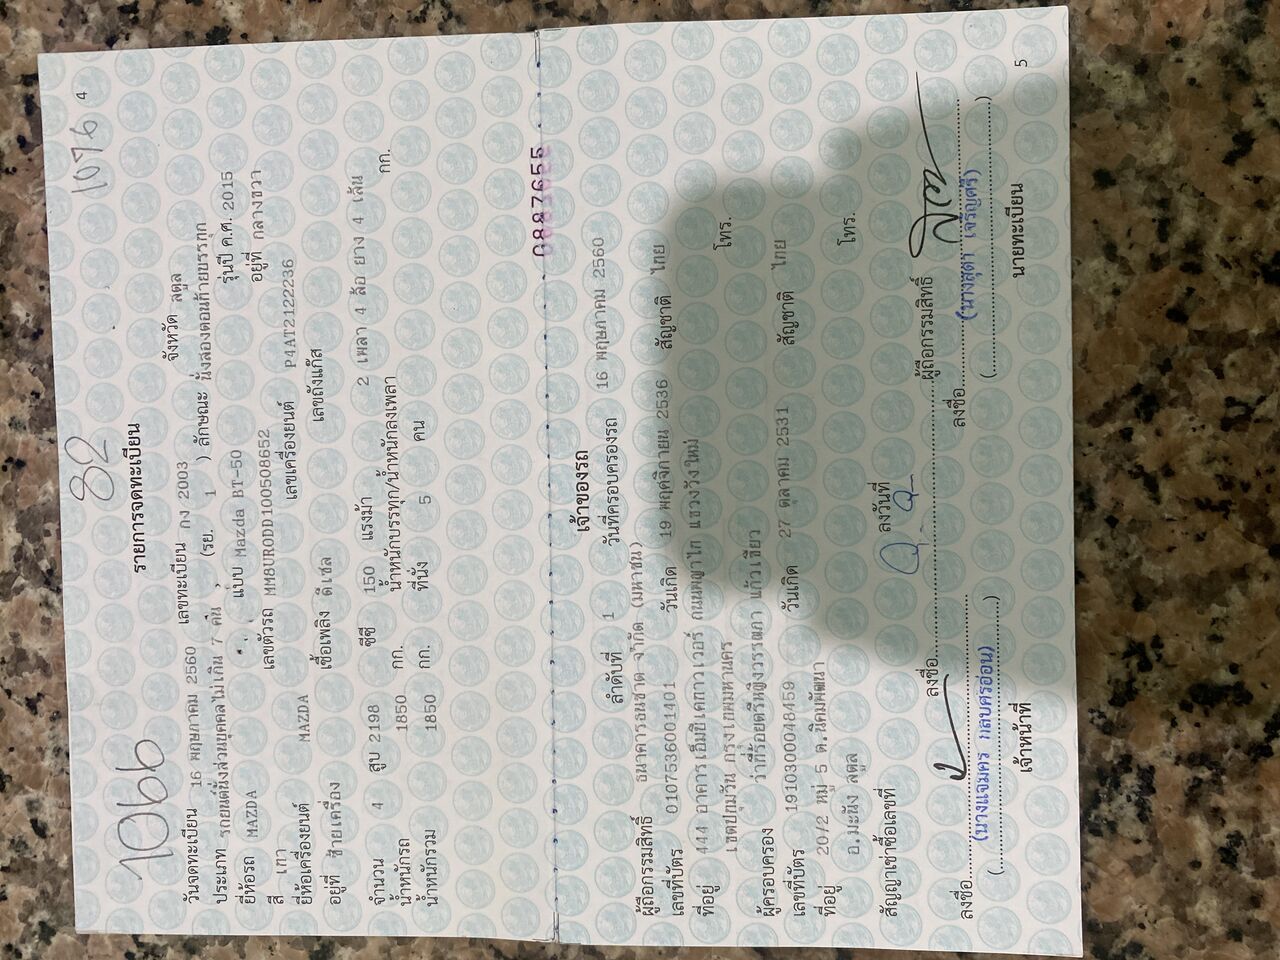 1066 82 1076 4
รายการจดทะเบียน
วันจดทะเบียน 16 พฤษภาคม 2560 เลขทะเบียน กง 2003 จังหวัด สตูล
ประเภท รถยนต์นั่งส่วนบุคคลไม่เกิน 7 คน , (รย. 1 ) ลักษณะ นั่งสองตอนท้ายบรรทุก
ยี่ห้อรถ MAZDA แบบ Mazda BT-50 รุ่นปี ค.ศ. 2015
สี เทา เลขตัวรถ MM8UR0DD100508652 อยู่ที่ กลางขวา
ยี่ห้อเครื่องยนต์ MAZDA เลขเครื่องยนต์ P4AT2122236
อยู่ที่ ซ้ายเครื่อง เชื้อเพลิง ดีเซล เลขถังแก๊ส
จำนวน 4 สูบ 2198 ซีซี 150 แรงม้า 2 เพลา 4 ล้อ ยาง 4 เส้น
น้ำหนักรถ 1850 กก. น้ำหนักบรรทุก/น้ำหนักลงเพลา กก.
น้ำหนักรวม 1850 กก. ที่นั่ง 5 คน
0887655
เจ้าของรถ
ลำดับที่ 1 วันที่ครอบครองรถ 16 พฤษภาคม 2560
ผู้ถือกรรมสิทธิ์ ธนาคารธนชาต จำกัด (มหาชน)
เลขที่บัตร 0107536001401 วันเกิด 19 พฤศจิกายน 2536 สัญชาติ ไทย
ที่อยู่ 444 อาคารเอ็มบีเคทาวเวอร์ ถนนพญาไท แขวงวังใหม่
เขตปทุมวัน กรุงเทพมหานคร โทร.
ผู้ครอบครอง ว่าที่ร้อยตรีหญิงวรรณภา แก้วเขียว
เลขที่บัตร 1910300048459 วันเกิด 27 ตุลาคม 2531 สัญชาติ ไทย
ที่อยู่ 20/2 หมู่ 5 ต.นิคมพัฒนา
อ.มะนัง สตูล โทร.
สัญญาเช่าซื้อเลขที่ ลงวันที่
ลงชื่อ ผู้ถือกรรมสิทธิ์
ลงชื่อ ลงชื่อ
(นางแจ่มศร กลับศรอ่อน) (นางสุดา เจริญศรี)
(....................) (....................)
เจ้าหน้าที่ นายทะเบียน
5